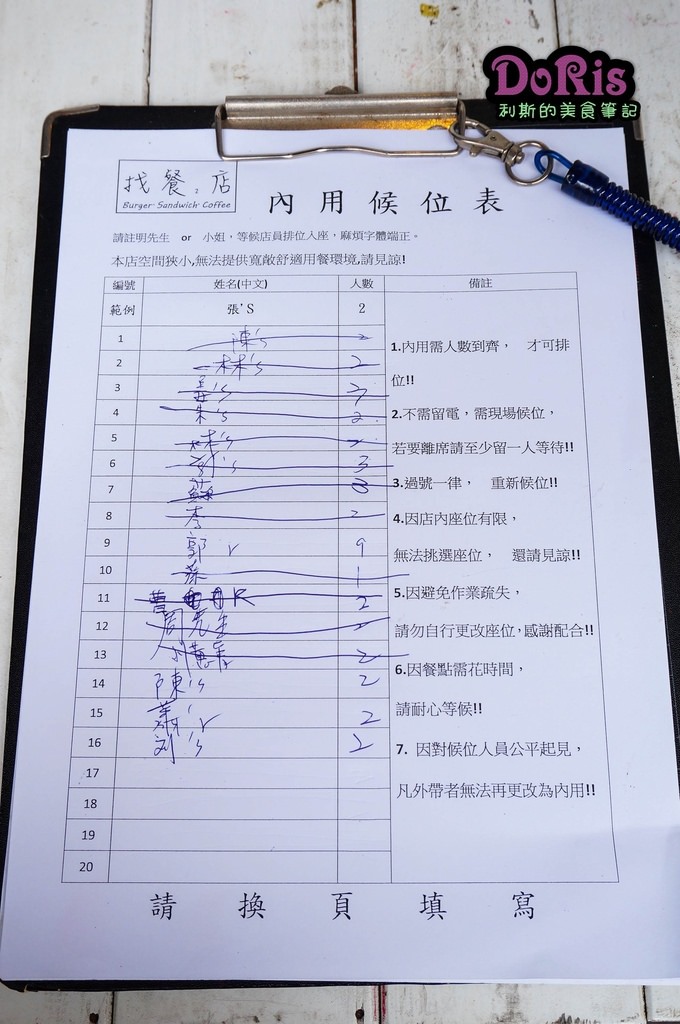 DoRis
利斯的美食筆記
找餐店
Burger Sandwich Coffee
內用候位表
請註明先生 or 小姐，等候店員排位入座，麻煩字體端正。
本店空間狹小,無法提供寬敞舒適用餐環境,請見諒!
編號 姓名(中文) 人數 備註
範例 張'S 2
1 陳's 2
2 林's 2
3
4 朱's 2
5 林's 2
6 劉's 3
7 蘇 3
8 李 2
9 郭 r 9
10 蔡 1
11 曹 R 2
12 周先生 2
13 2
14 陳's 2
15 蕭 r 2
16 刘's 2
17
18
19
20
1.內用需人數到齊， 才可排
位!!
2.不需留電，需現場候位，
若要離席請至少留一人等待!!
3.過號一律， 重新候位!!
4.因店內座位有限，
無法挑選座位， 還請見諒!!
5.因避免作業疏失，
請勿自行更改座位,感謝配合!!
6.因餐點需花時間，
請耐心等候!!
7. 因對候位人員公平起見，
凡外帶者無法再更改為內用!!
請換頁填寫